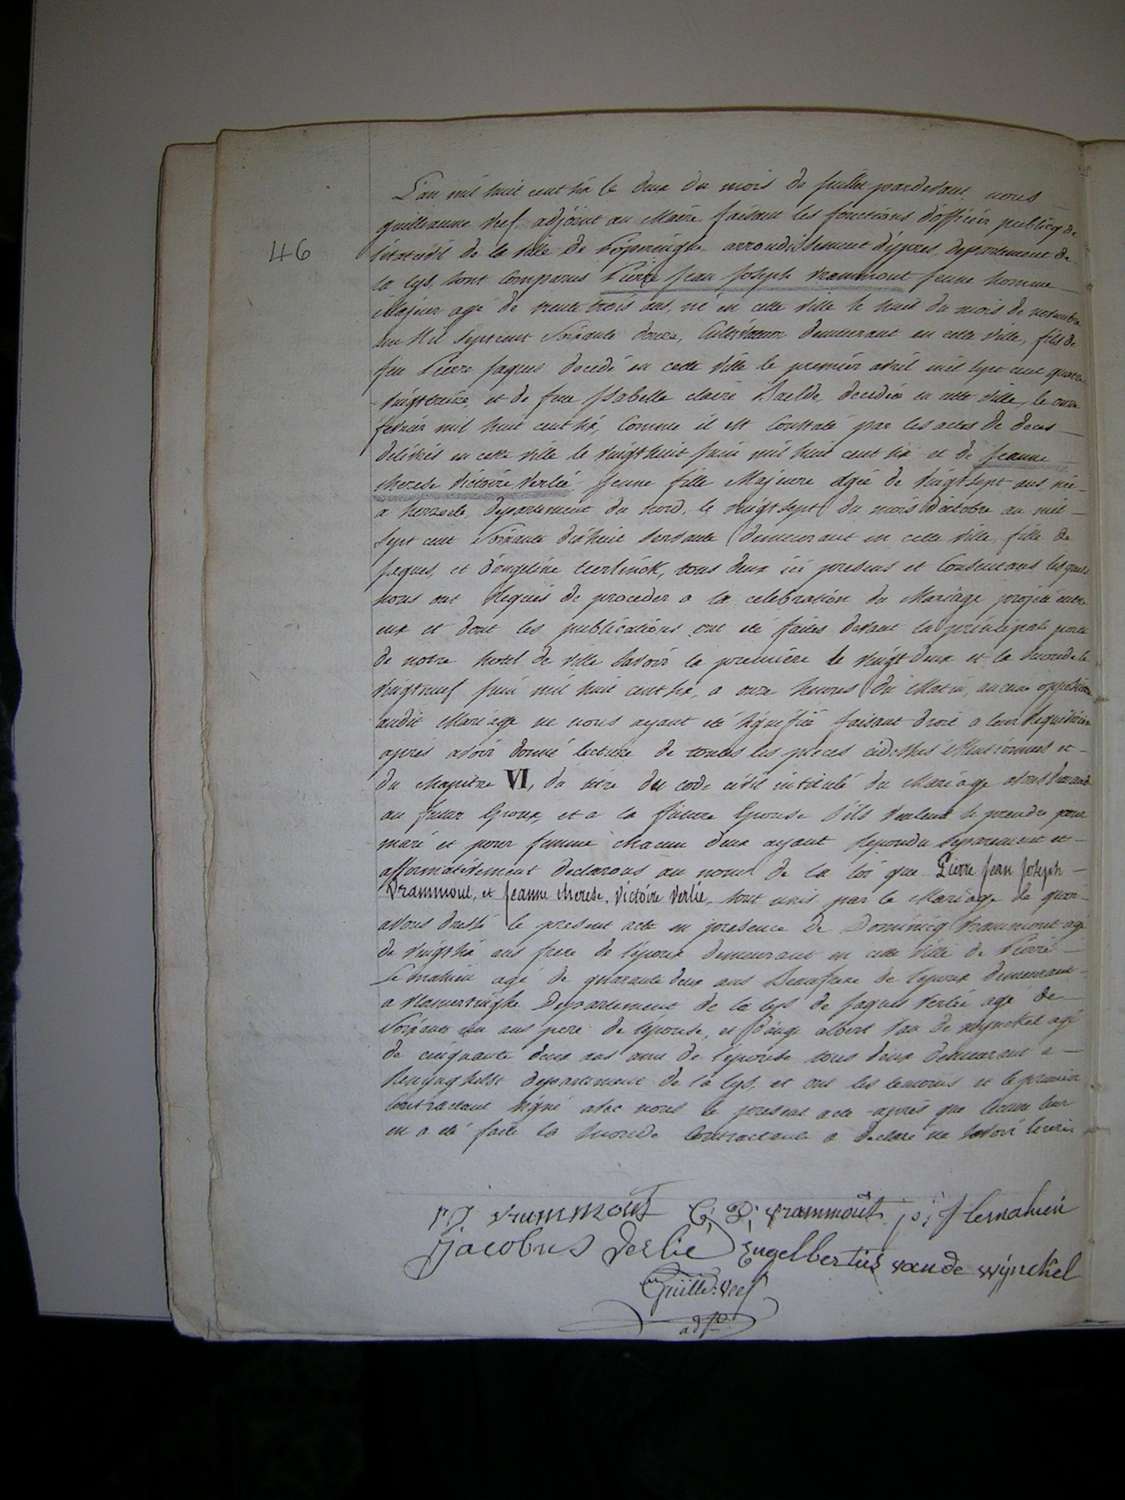 L'an mil huit cent six le deux du mois de Juillet pardevant nous
guilleaume Veef adjoint au Maire faisant les fonctions d'officier publicq de
l'etat civil de la ville de Poperinghe arrondissement d'ypres, departement de
46
la Lys, sont comparus Pierre Jean Joseph Vrammout jeune homme
Majeur agé de trente trois ans, né en cette ville le huit du mois de novembre
an Mil Septcent Soixante douze, Cultivateur demeurant en cette ville, fils de
feu Pierre Jaques decedé en cette ville le premier avril mil sept cent quatre
vingt treize, et de feue Isabelle claire Baelde, decedée en cette ville, le onze
fevrier mil huit cent six, Comme il est Constaté par les actes de deces
delivrés en cette ville le vingt huit Juin mil huit cent six et de Jeanne
therese Victoire Verlié Jeune fille Majeure Agée de vingt sept ans née
a herzeele, departement du nord, le vingt sept du mois d'octobre an mil
Sept cent Soixante dix huit Servante demeurant en cette ville, fille de
Jaques, et d'angeline teerlinck, tous deux ici presens et Consentans lesquels
nous ont requis de proceder a la celebration du Mariage projeté entre
eux et dont les publications ont été faites devant la principale porte
de notre hotel de ville Savoir la premiere le vingt deux et la seconde le
vingt neuf Juin mil huit cent six, a onze heures du Matin, aucune opposition
audit Mariage ne nous ayant été signifiée faisant droit a leur requisition
apres avoir donné lecture de toutes les pieces cidessus Mentionnées et
du chapitre VI, du titre du code civil intitulé du Mariage avons demandé
au futur Epoux, et a la future Epouse s'ils veulent se prendre pour
mari et pour femme chacun deux ayant repondu separement et
affirmativement declarons au nom de la loi que Pierre Jean Joseph
Vrammout, et Jeanne therese, Victoire Verlié, sont unis par le Mariage de quoi
avons dressé le present acte en presence de Dominicq Vrammout agé
de vingt six ans frere de l'epoux demeurant en cette ville de Pierre
Le mahieu agé de quarante deux ans Beaufrere de l'epoux demeurant
a Vlamertinghe Departement de la Lys de Jaques Verlié agé de
Soixante un ans pere de l'epouse, et d'ange albert Van de wynckel agé
de cinquante deux ans ami de l'epouse tous deux demeurant a
Reninghelst departement de la Lys, et ont les temoins et le premier
Contractant signé avec nous le present acte apres que lecture leur
en a été faite la seconde Contractante a declaré ne savoir ecrire
P J Vrammout C; D; Vrammout p; J lemahieu
Jacobus Verlié Engelbertus vande wynckel
Guille. Veef
adjt.